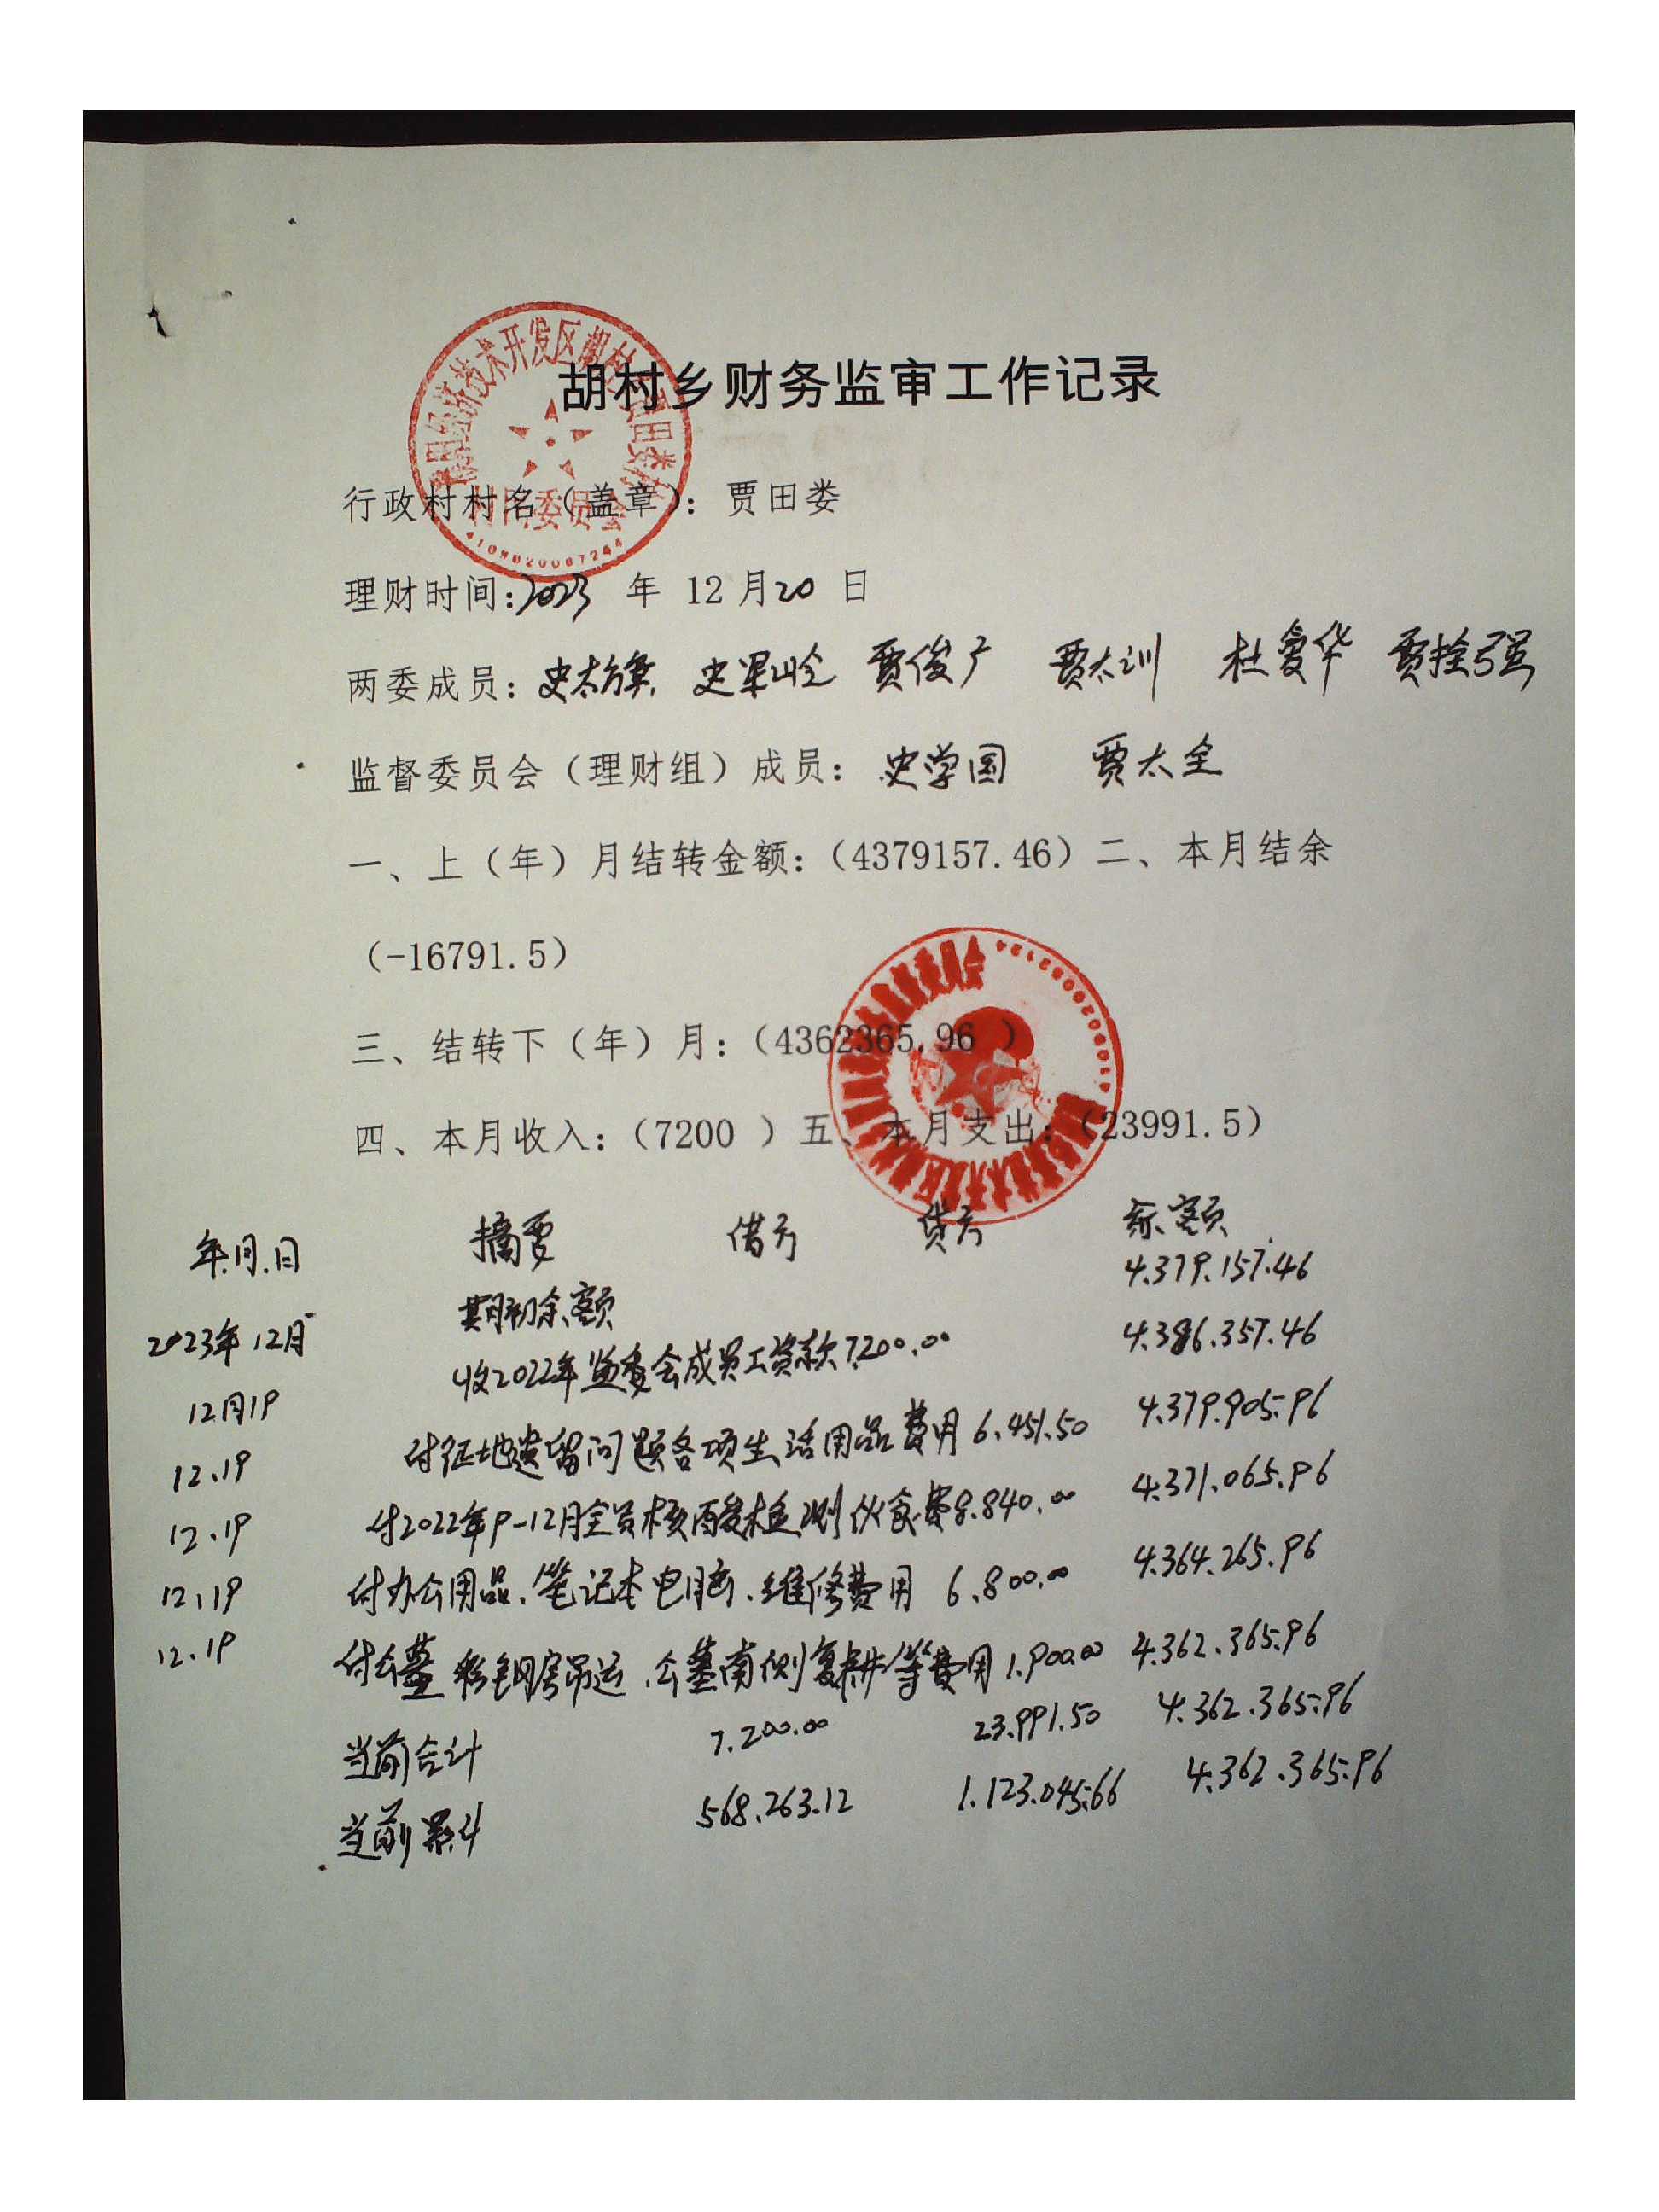 胡村乡财务监审工作记录
行政村村名（盖章）：贾田娄
村民委员会
理财时间：2023 年 12 月 20 日
两委成员：史太旗 史 贾俊广 贾太训 杜爱华 贾拴强
监督委员会（理财组）成员：史学国 贾太全
一、上（年）月结转金额：（4379157.46）二、本月结余
（-16791.5）
三、结转下（年）月：（4362365.96 ）
四、本月收入：（7200 ）五、本月支出：（23991.5）
年.月.日 摘要 借方 贷方 余额
2023年12月 期初余额 4.379.157.46
12月19 收2022年监委会成员工资款 7.200.00 4.386.357.46
12.19 付征地遗留问题各项生活用品费用 6.451.50 4.379.905.96
12.19 付2022年9-12月全员核酸检测伙食费 8.840.00 4.371.065.96
12.19 付办公用品.笔记本电脑.维修费用 6.800.00 4.364.265.96
12.19 付公墓彩钢房吊运.公墓南侧复耕等费用 1.900.00 4.362.365.96
当前合计 7.200.00 23.991.50 4.362.365.96
当前累计 568.263.12 1.123.045.66 4.362.365.96